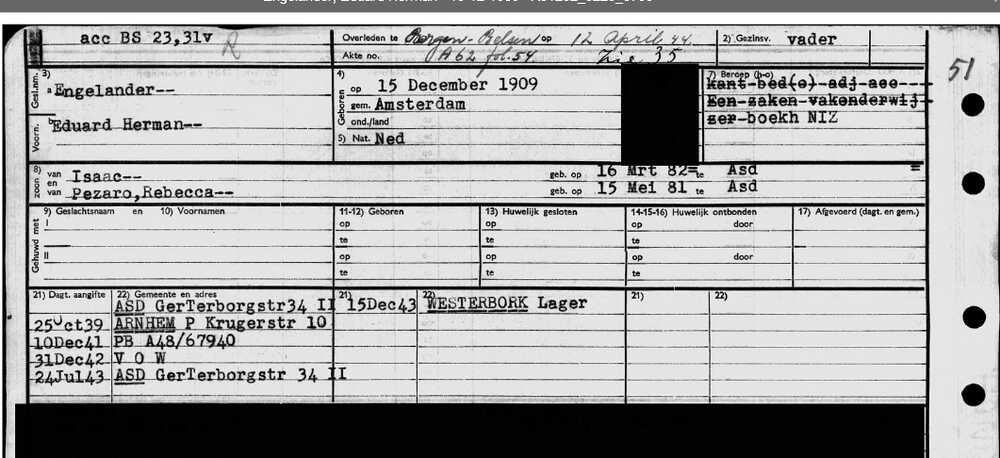 acc BS 23,31v R
Overleden te Bergen-Belsen op 12 April 44.
Akte no. A62 fol. 54
35
2) Gezinsv. vader
51
3) Gesl.nm. a Engelander--
Voorn. b Eduard Herman--
4) Geboren op 15 December 1909
gem. Amsterdam
ond./land
5) Nat. Ned
7) Beroep (b-o)
kant bed(o) adj acc
Een zaken vakonderwij-
zer boekh NIZ
8) zoon van Isaac-- geb. op 16 Mrt 82= te Asd =
en van Pezaro,Rebecca-- geb. op 15 Mei 81 te Asd
9) Geslachtsnaam en 10) Voornamen
11-12) Geboren
13) Huwelijk gesloten
14-15-16) Huwelijk ontbonden
17) Afgevoerd (dagt. en gem.)
Gehuwd met
I op op op door
te te te
II op op op door
te te te
21) Dagt. aangifte 22) Gemeente en adres 21) 22) 21) 22)
ASD GerTerborgstr34 II 15Dec43 WESTERBORK Lager
25Oct39 ARNHEM P Krugerstr 10
10Dec41 PB A48/67940
31Dec42 V O W
24Jul43 ASD GerTerborgstr 34 II